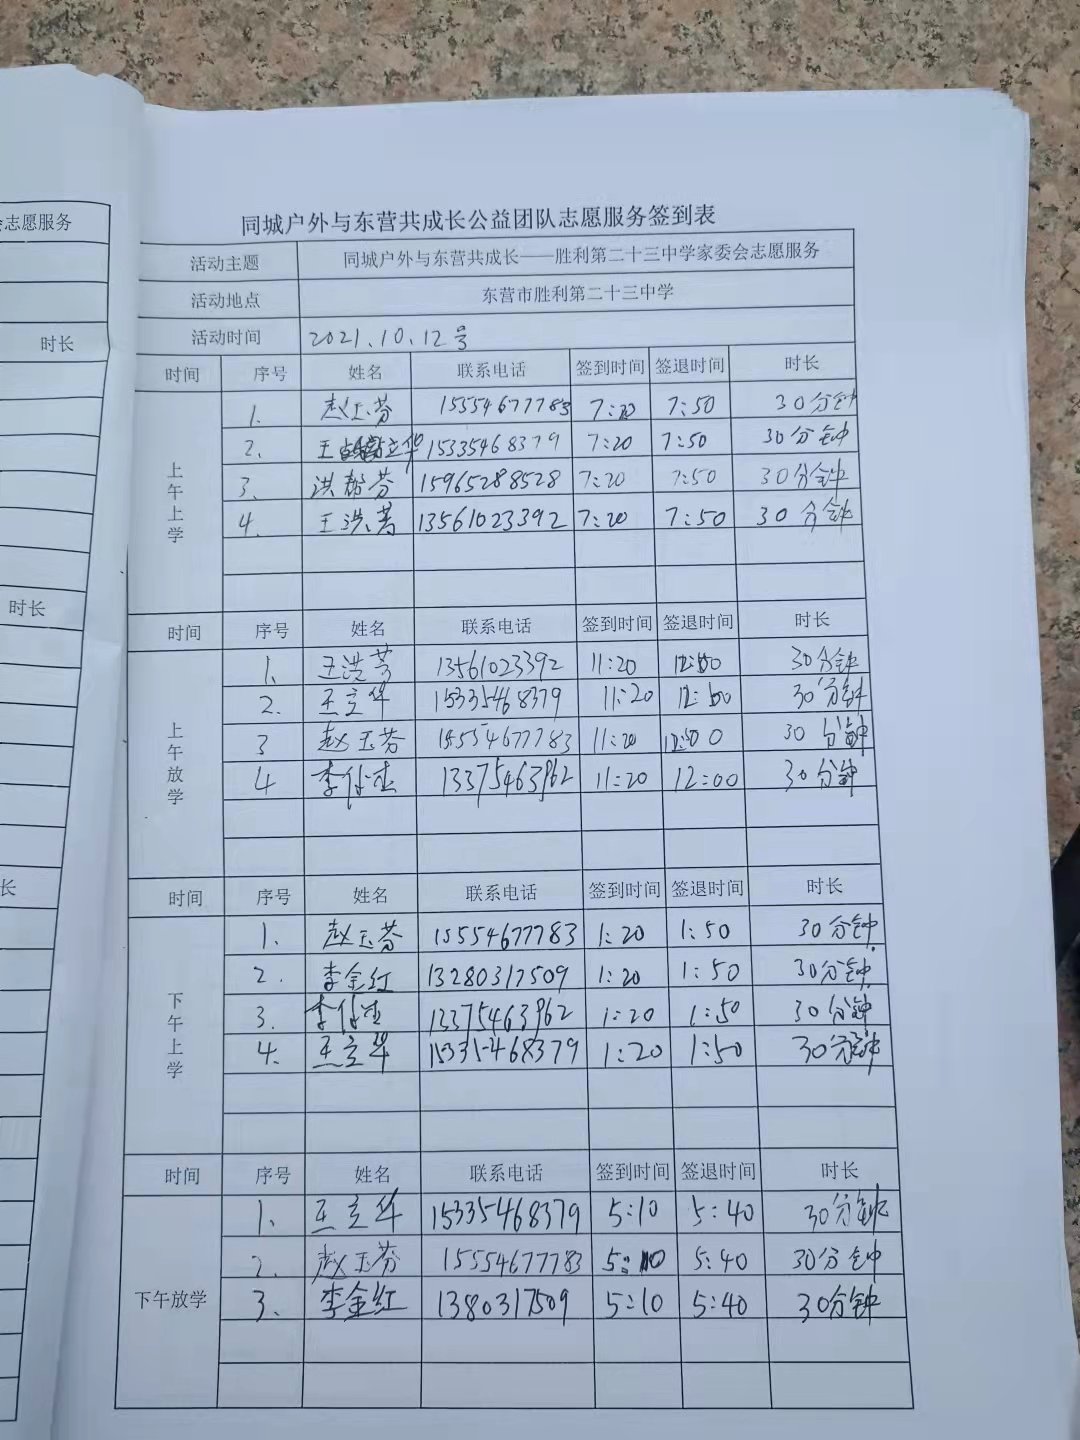 会志愿服务
时长
时长
长
同城户外与东营共成长公益团队志愿服务签到表
活动主题 同城户外与东营共成长——胜利第二十三中学家委会志愿服务
活动地点 东营市胜利第二十三中学
活动时间 2021.10.12号
时间 序号 姓名 联系电话 签到时间 签退时间 时长
上午上学
1. 赵玉芬 15554677783 7:20 7:50 30分钟
2. 王立华 15335468379 7:20 7:50 30分钟
3、 洪 芬 15965288528 7:20 7:50 30分钟
4. 王洪芳 13561023392 7:20 7:50 30分钟
时间 序号 姓名 联系电话 签到时间 签退时间 时长
上午放学
1、 王洪芳 13561023392 11:20 12:00 30分钟
2. 王立华 15335468379 11:20 12:00 30分钟
3 赵玉芬 15554677783 11:20 12:00 30分钟
4 李 13375463962 11:20 12:00 30分钟
时间 序号 姓名 联系电话 签到时间 签退时间 时长
下午上学
1、 赵玉芬 15554677783 1:20 1:50 30分钟
2. 李金红 13280317509 1:20 1:50 30分钟
3. 李 13375463962 1:20 1:50 30分钟
4. 王立华 15335468379 1:20 1:50 30分钟
时间 序号 姓名 联系电话 签到时间 签退时间 时长
下午放学
1、 王立华 15335468379 5:10 5:40 30分钟
2. 赵玉芬 15554677783 5:10 5:40 30分钟
3. 李金红 1380317509 5:10 5:40 30分钟